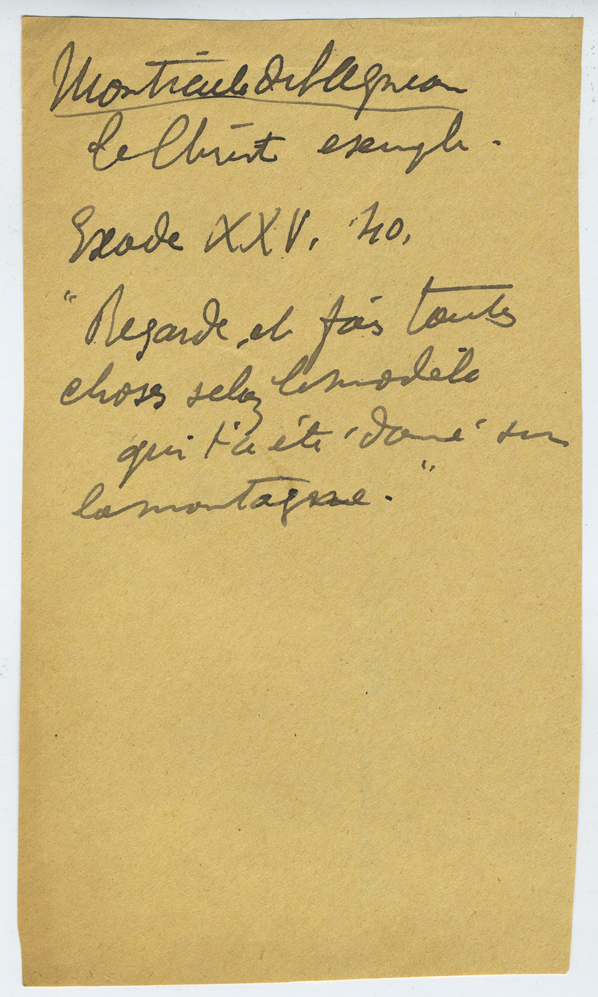 Monticule de l'Agneau
Le Christ exemple.
Exode XXV. 40.
"Regarde, et fais toutes
choses selon le modèle
qui t'a été donné sur
la montagne."